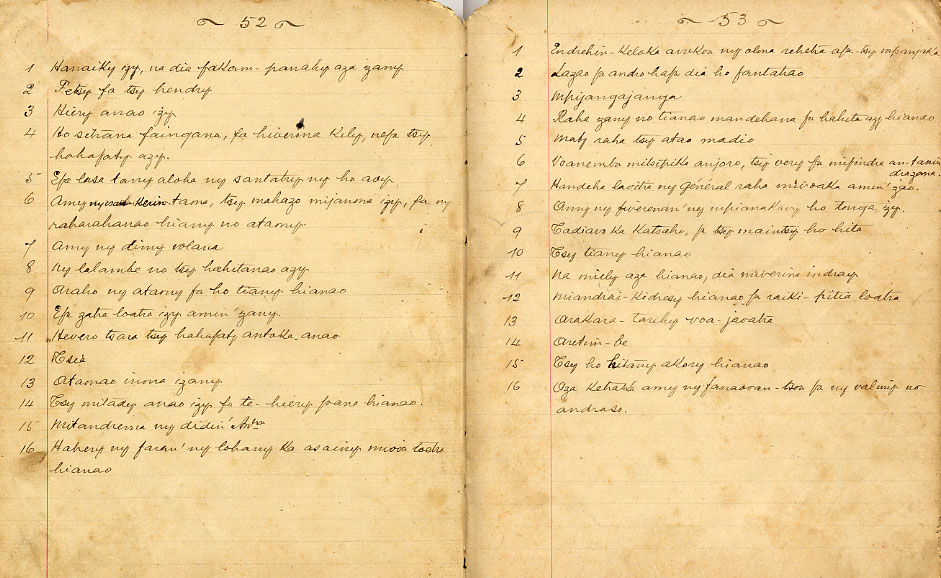 52
1 Hanaiky izy, na dia fakam-panahy aza zany
2 Tsy fa tsy hendry
3 Hiery anao izy
4 Ho sitrana faingana, fa hiverina kely, nefa tsy
hahafaty azy.
5 Efa lasa tany aloha ny santatry ny ho avy.
6 Amy ny taona, tsy mahazo mijanona izy, fa ny
raharahanao hiany no ataony
7 Amy ny dimy volana
8 Ny lalambe no tsy hahitanao azy
9 Araho ny ataony fa ho tiany hianao
10 Efa zaha loatra izy amin' zany.
11 Hevero tsara tsy hahafaty antoka anao
12 Tsia
13 Ataonao inona izany
14 Tsy mitady anao izy fa te-hiery hianao.
15 Mitandrema ny didin' Antra
16 Hahery ny faran' ny lohany ka asainy
hianao
53
1 ny olona rehetra afa-tsy mpanjaka
2 Lazao fa andro hafa dia ho fantatrao
3 Mpijangajanga
4 Raha zany no tianao mandehana fa hahita azy hianao
5 Maty raha tsy atao madio
6 mitsipika anjoro, tsy very fa mifindra an-tanin-
drazana.
7 Handeha lavitra ny général raha mivoaka amin' zao.
8 Amy ny fiverenan' ny mpianakavy ho tonga izy.
9 Tadiavo ka katsaho, fa tsy maintsy ho hita
10 Tsy tiany hianao
11 Na miely aza hianao, dia miverina indray
12 hianao fa raiki-pitia loatra
13 Arakara-tarehy voa-javatra
14 Aretim-be
15 Tsy ho hitany akory hianao
16 Aza kekaka amy ny fanaovan-tsoa fa ny valiny no
andraso.